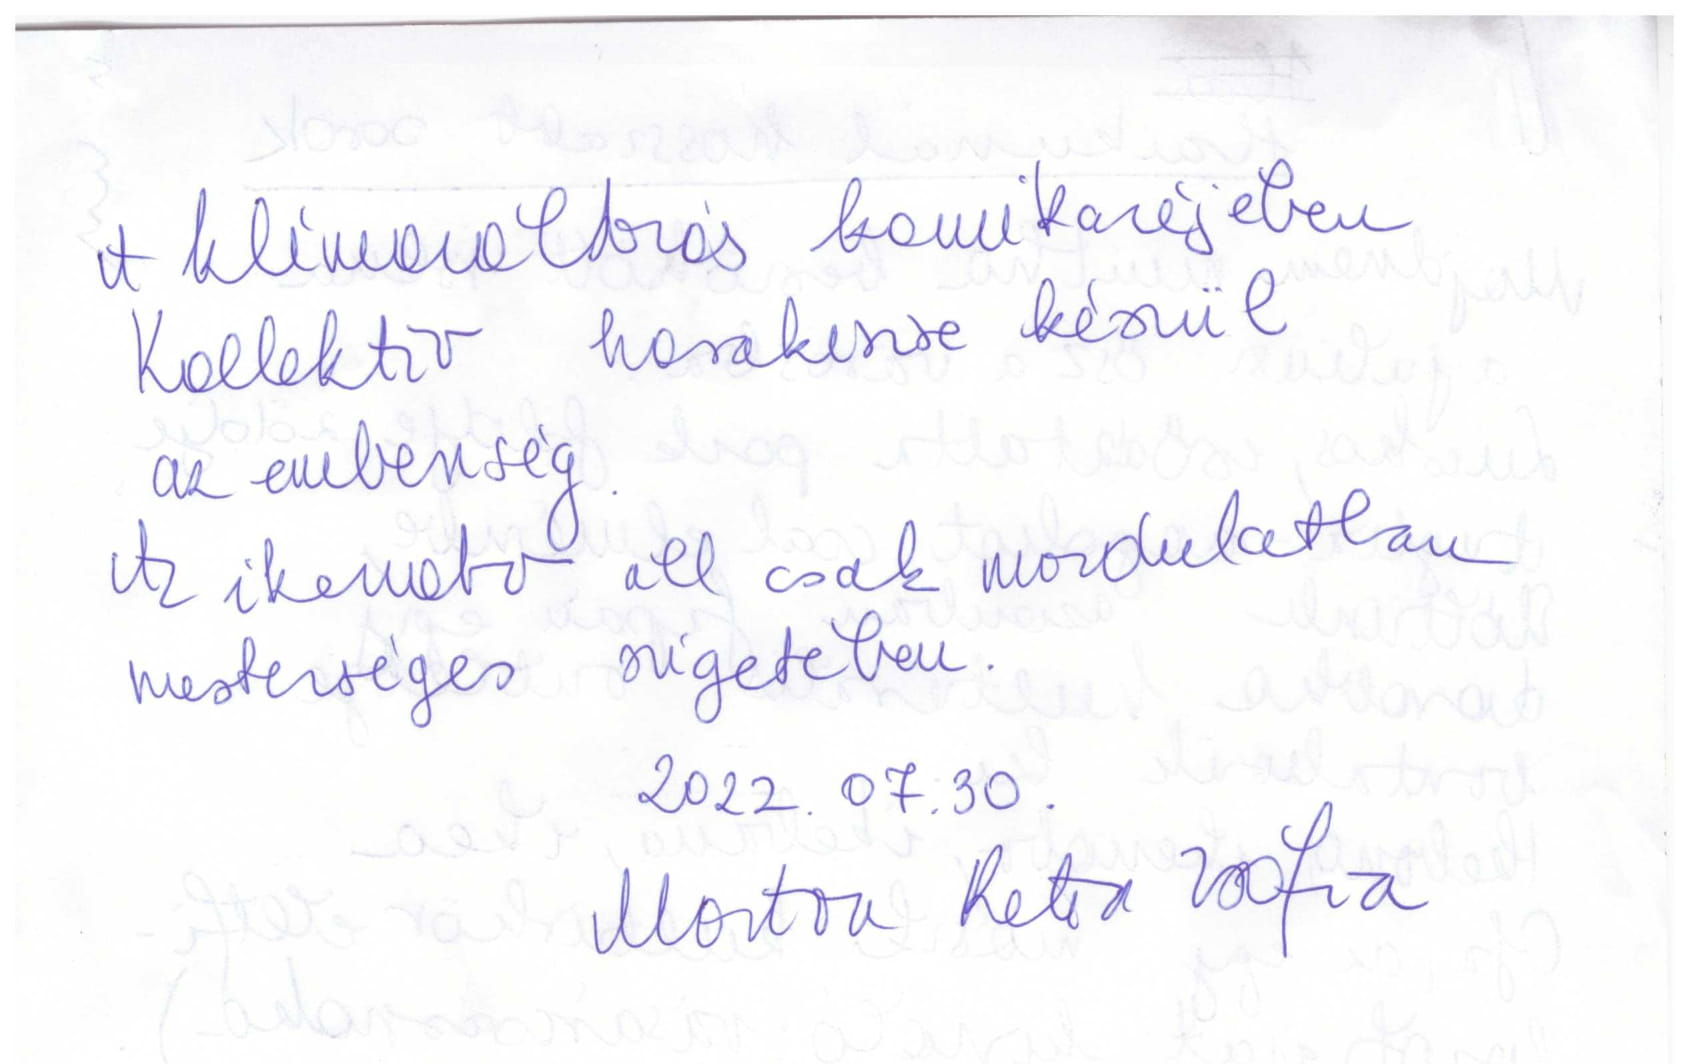 A klímaváltozás kamikazéjeben
Kollektív harakirire készül
az emberiség.
Az ikernető áll csak mozdulatlan
mesterséges szigetében.
2022. 07. 30.
Zsófia